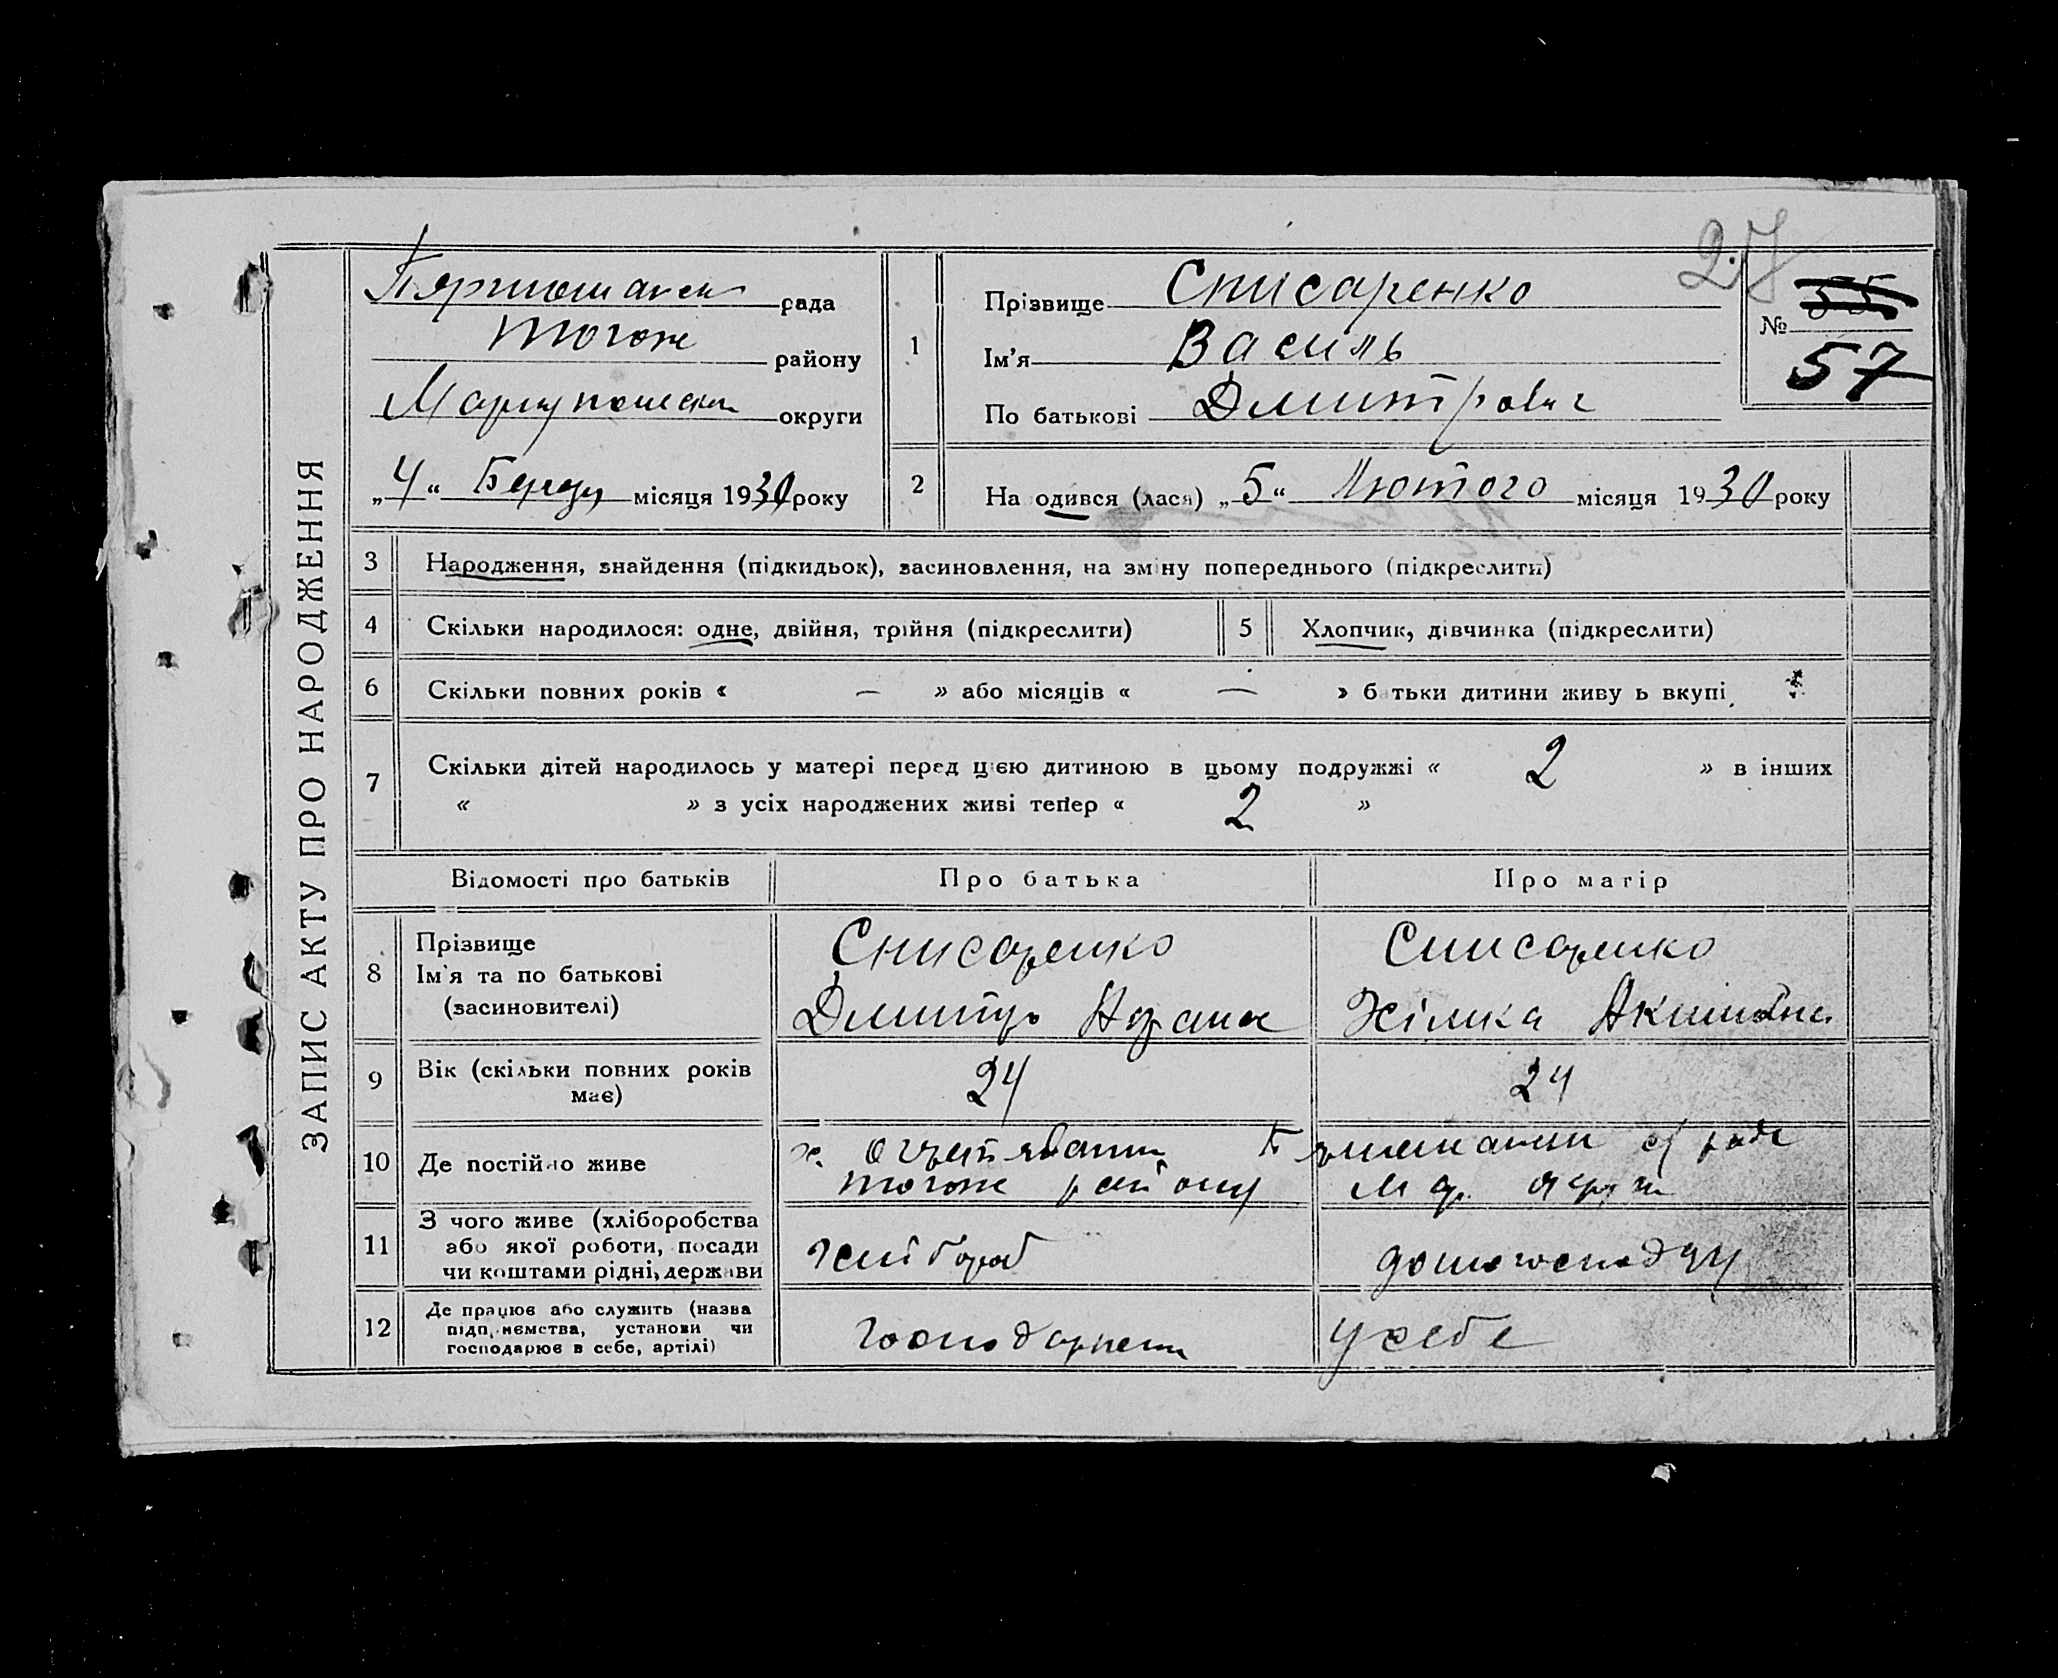 27
ЗАПИС АКТУ ПРО НАРОДЖЕННЯ
рада
тогож району
округи
„4“ місяця 1930 року
1
Прізвище Списаренко
Ім'я Василь
По батькові Дмитрович
№ 55
57
2
На одився (лася) „5“ Лютого місяця 1930 року
3 Народження, знайдення (підкидьок), засиновлення, на зміну попереднього (підкреслити)
4 Скільки народилося: одне, двійня, трійня (підкреслити) 5 Хлопчик, дівчинка (підкреслити)
6 Скільки повних років « — » або місяців « — » б тьки дитини живу ь вкупі
7 Скільки дітей народилось у матері перед цією дитиною в цьому подружжі « 2 » в інших
« » з усіх народжених живі тепер « 2 »
Відомості про батьків Про батька Про матір
8 Прізвище
Ім'я та по батькові
(засиновителі)
Списаренко
Дмитро
Списаренко
9 Вік (скільки повних років
має)
24
24
10 Де постійно живе
х.
тогож району
с/ради
11 З чого живе (хліборобства
або якої роботи, посади
чи коштами рідні, держави
хлібороб
12 Де працює або служить (назва
підп, иємства, установи чи
господарює в себе, артілі)
у себе